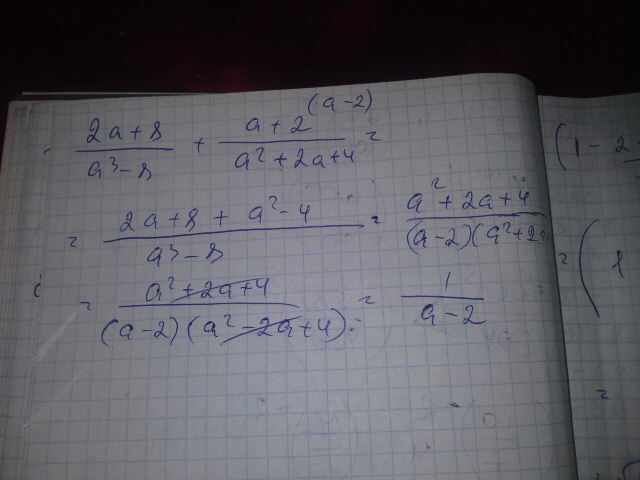 (a-2)
2a+8 / a³-8 + a+2 / a²+2a+4 =
= 2a+8+a²-4 / a³-8 = a²+2a+4 / (a-2)(a²+2a
= a²+2a+4 / (a-2)(a²-2a+4) = 1 / a-2
(1-2
= (1
=